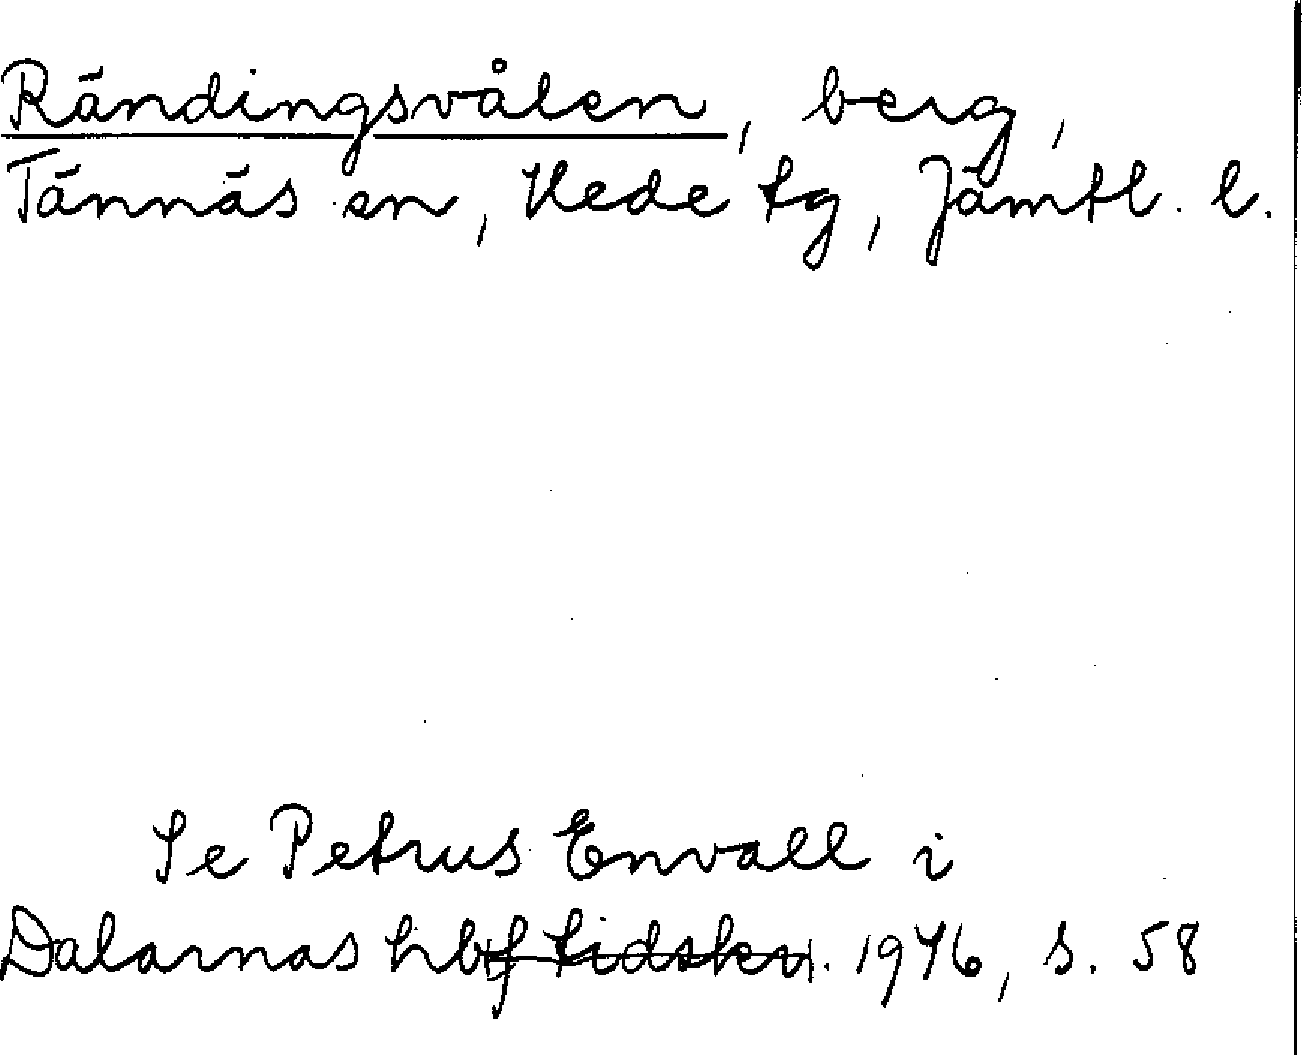 Rändingsvålen, berg,
Tännäs sn, Hede tg, Jämtl. l.
Se Petrus Envall i
Dalarnas hbf tidskr. 1946, s. 58